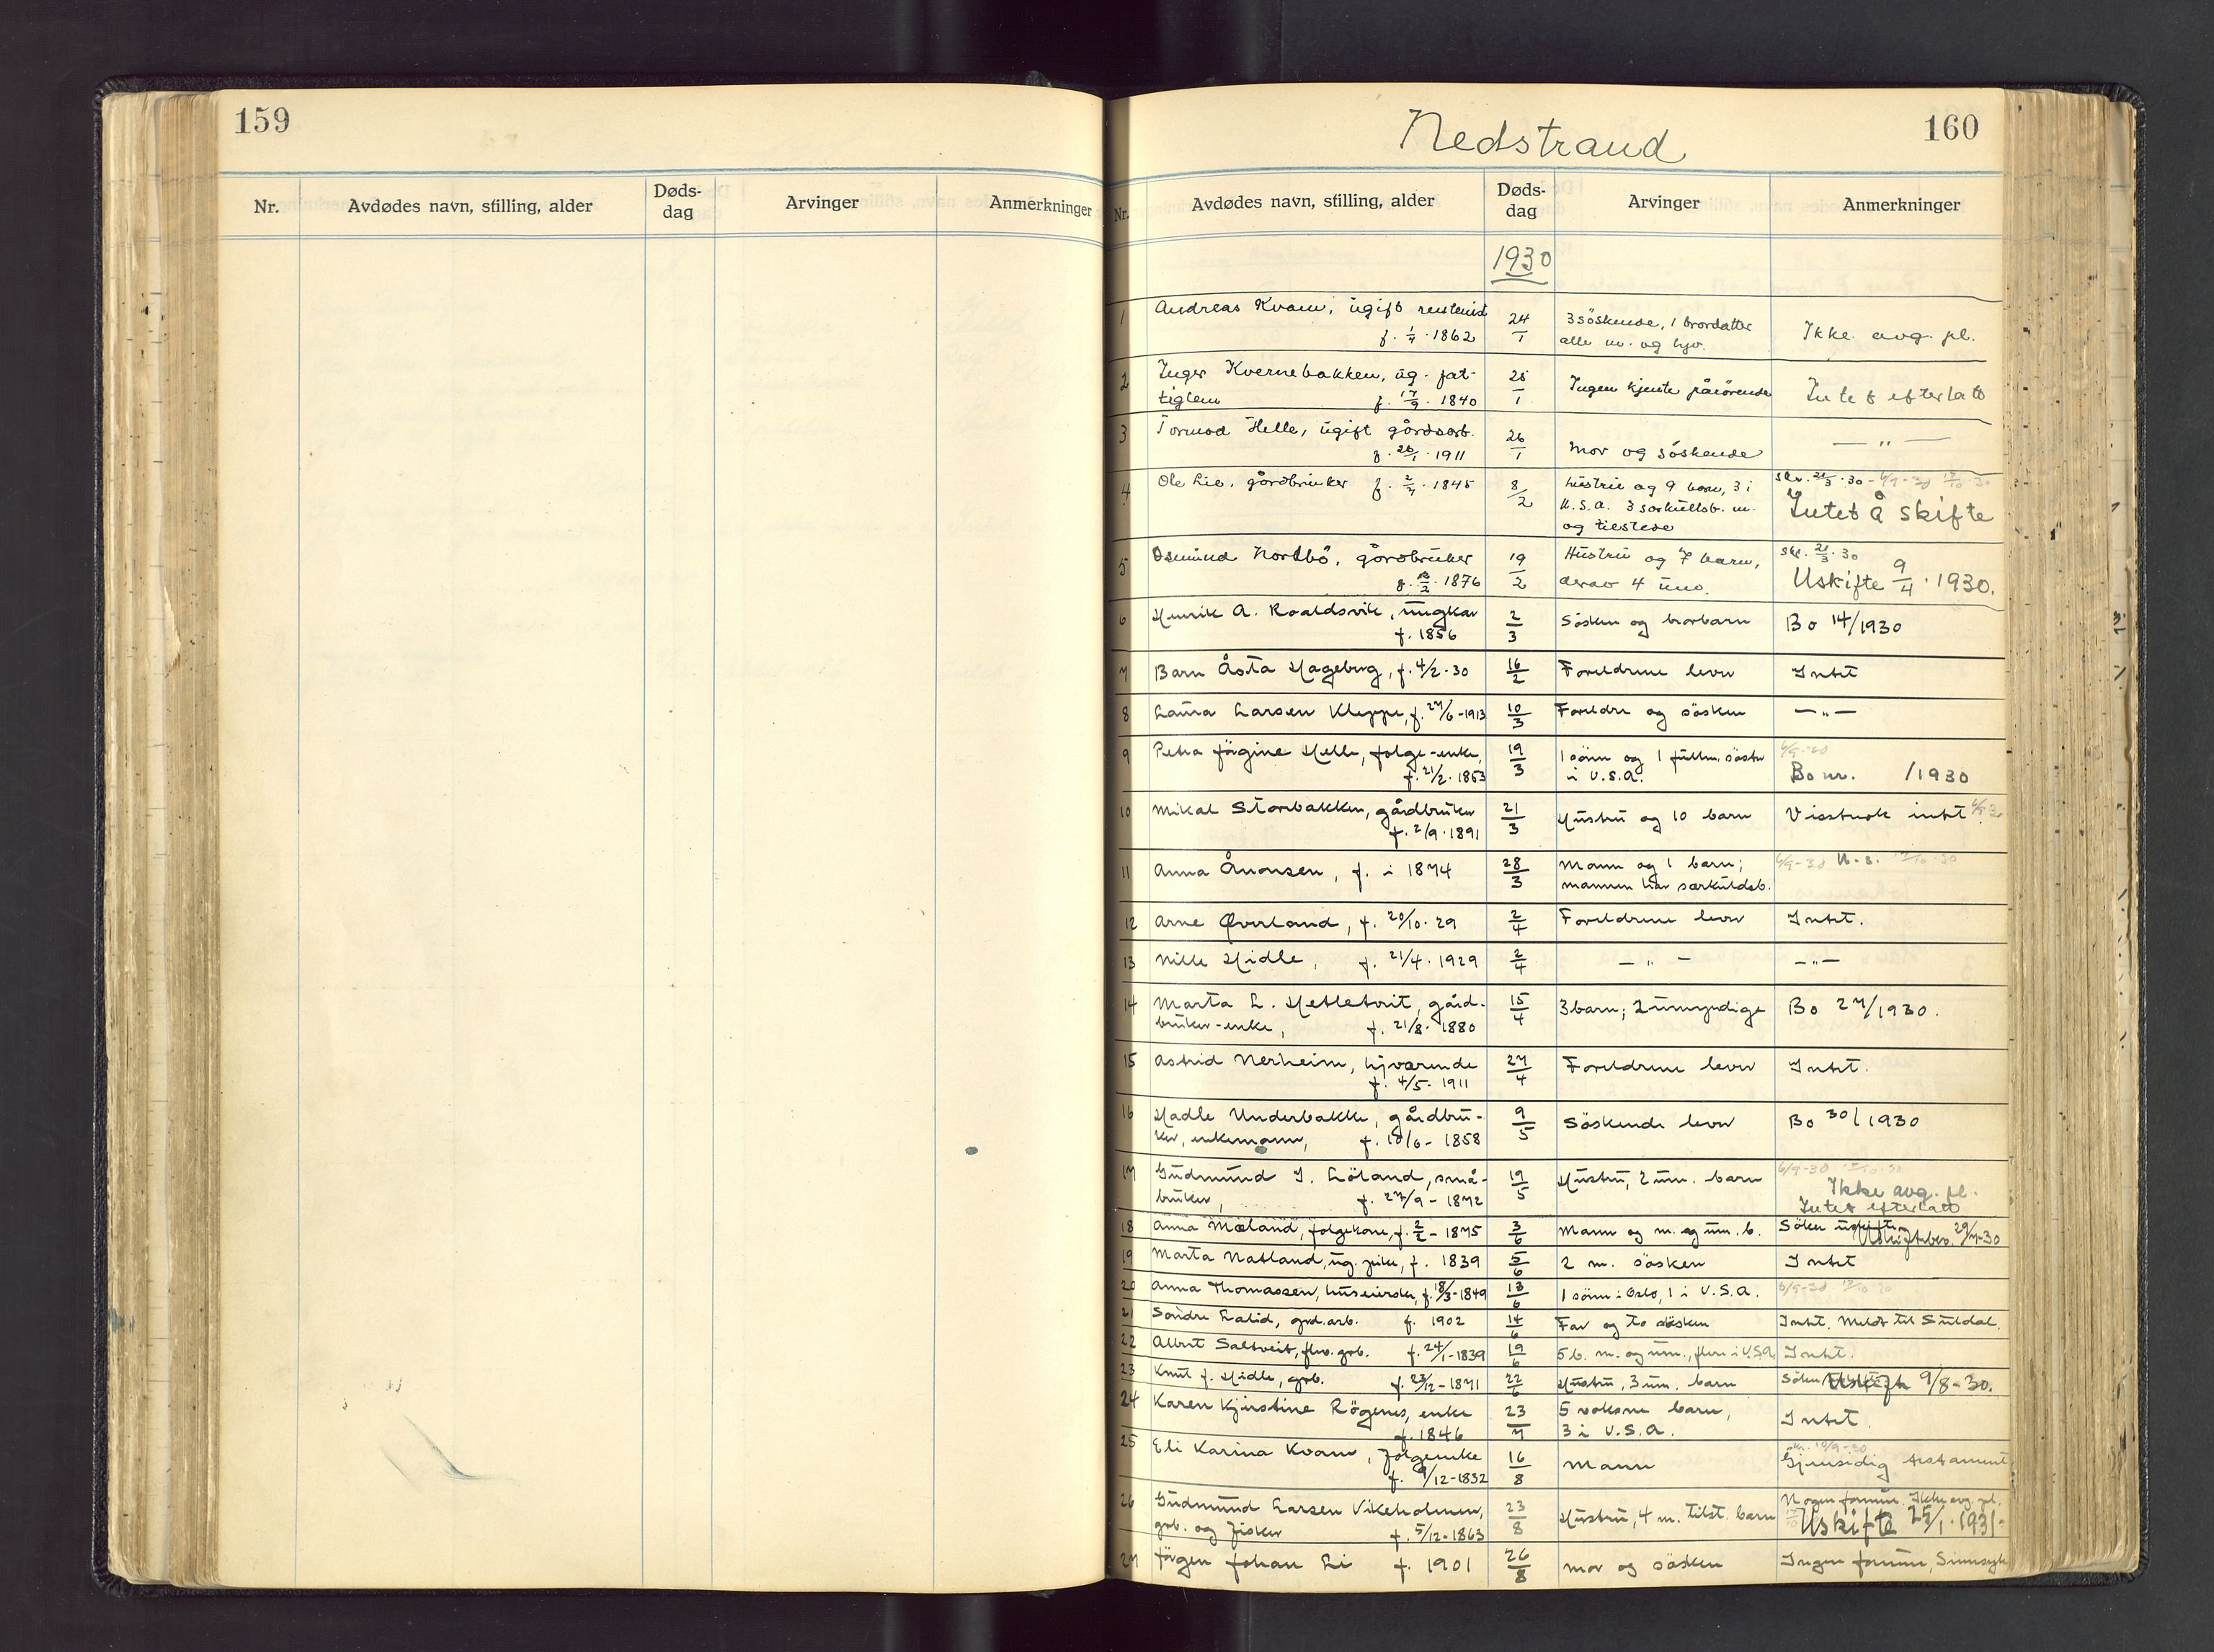 159
Nr. Avdødes navn, stilling, alder Døds-dag Arvinger Anmerkninger
Nedstrand 160
Nr. Avdødes navn, stilling, alder Døds-dag Arvinger Anmerkninger
1930
1 Andreas Kvam, ugift 24/1 3 söskende, 1 brordatter
f. 1/7 · 1862 alle m. og hjv. Ikke avg. pl.
2 Inger Kvernebakken, ug. fat- 25/1 Ingen kjente pårörende Intet efterlatt
tiglem f. 17/9 · 1840
3 Tormod Helle, ugift gårdsarb. 26/1 Mor og söskende — " —
f. 26/1 · 1911
4 Ole Lie, gårdbruker f. 2/7 · 1845 8/2 Hustru og 9 barn, 3 i skr. 21/3 · 30 - 6/9-30
U.S.A. 3 særkullsb. m. Intet å skifte
og tilstede
5 Osmund Nordbö, gårdbruker 19/2 Hustru og 7 barn, skr. 21/3 · 30
1876 derav 4 um. Uskifte 9/4 · 1930.
6 Henrik A. Roaldsvik, ungkar 2/3 Sösken og brorbarn Bo 14/1930
f. 1856
7 Barn Åsta Hageberg, f. 4/2 · 30 16/2 Foreldrene lever Intet
8 Laura Larsen Kleppe, f. 27/6 - 1913 10/3 Foreldre og sösken — " —
9 Petra Jörgine Helle, folge-enke, 19/3 1 sönn og 1 fullm. söster 6/9-30
f. 21/2 · 1853 i U.S.A. Bo nr. /1930
10 Mikal Storbakken, gårdbruker 21/3 Hustru og 10 barn Visstnok intet
f. 2/9 · 1891
11 Anna Ånonsen, f. i 1874 28/3 Mann og 1 barn; 6/9-30 U.s.
mannen har særkuldsb.
12 Arne Øverland, f. 20/10 · 29 2/4 Foreldrene lever Intet.
13 Nille Hidle, f. 21/4 · 1929 2/4 — " — — " —
14 Marta L. Hetletveit, gård- 15/4 3 barn; 2 umyndige Bo 27/1930.
bruker-enke, f. 21/8 · 1880
15 Astrid Nerheim, hjværende 27/4 Foreldrene lever Intet.
f. 4/5 - 1911
16 Hadle Underbakke, gårdbru- 9/5 Söskende lever Bo 30/1930
ker, enkemann, f. 10/6 - 1858
17 Gudmund I. Löland, små- 19/5 Hustru, 2 um. barn 6/9-30
bruker, f. 27/9 - 1872 Ikke avg. pl.
Intet efterlatt
18 Anna Mæland, folgekone, f. 2/2 - 1875 3/6 Mann og m. og um. b. Söker uskifte 29/7-30
19 Marta Natland, ug. pike, f. 1839 5/6 2 m. sösken Intet
20 Anna Thomassen, f. 18/3 - 1849 13/6 1 sönn i Oslo, 1 i U.S.A. 6/9-30
21 Sondre Lalid, grd.arb. f. 1902 14/6 Far og to sösken Intet. Meldt til Suldal.
22 Albert Saltveit, grb. f. 24/1 - 1839 19/6 5 b. m. og um., flere i U.S.A. Intet.
23 Knut J. Hidle, grb. f. 23/12 - 1871 22/6 Hustru, 3 um. barn Söker Uskifte 9/8-30.
24 Karen Kjerstine Rögenes, enke 23/7 5 voksne barn, Intet
f. 1846 3 i U.S.A.
25 Eli Karina Kvam, folgeenke 16/8 Mann Gjensidig testament
f. 9/12 - 1832
26 Gudmund Larsen Vikeholmen, 23/8 Hustru, 4 m. tilst. barn Nogen formue. Ikke avg. pl.
grb. og fisker f. 5/12 - 1863 Uskifte 25/1 · 1931
27 Jörgen Johan Li f. 1901 26/8 Mor og sösken Ingen formue, Sinnsyk